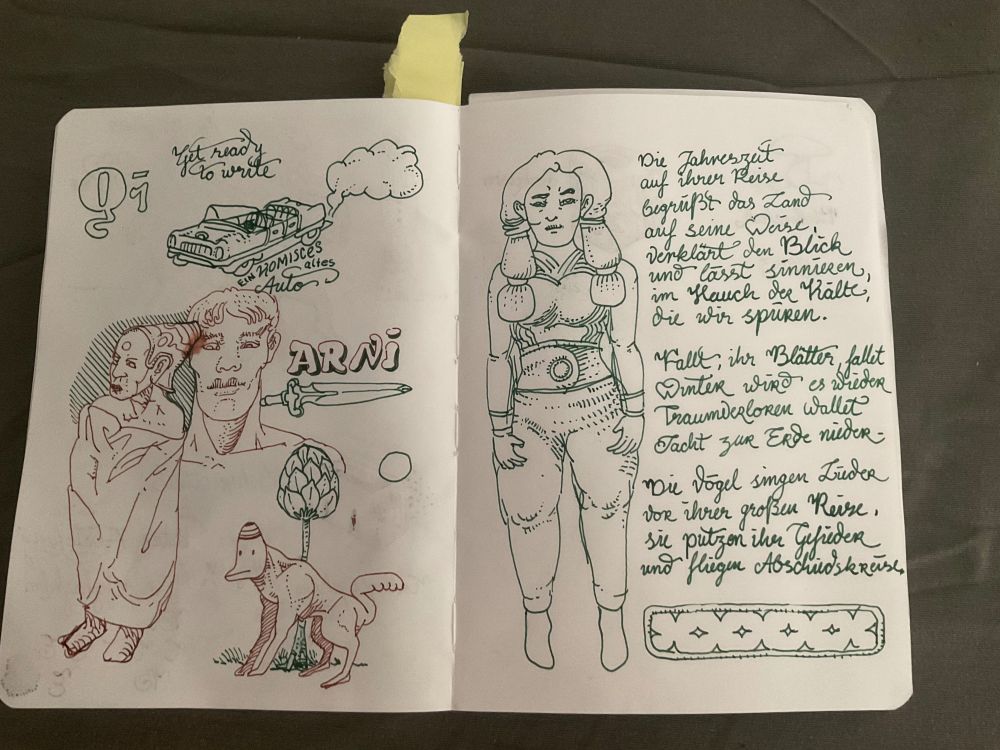 Get ready
to write
Ein KOMISCHES
altes
Auto
ARNi
Die Jahreszeit
auf ihrer Reise
begrüßt das Land
auf seine Weise,
verklärt den Blick
und lässt sinnieren,
im Hauch der Kälte,
die wir spüren.
Fallt, ihr Blätter, fallet
Winter wird es wieder
Traumverloren wallet
zur Erde nieder-
Die Vögel singen Lieder
vor ihrer großen Reise,
sie putzen ihr Gefieder
und fliegen Abschiedskreise.